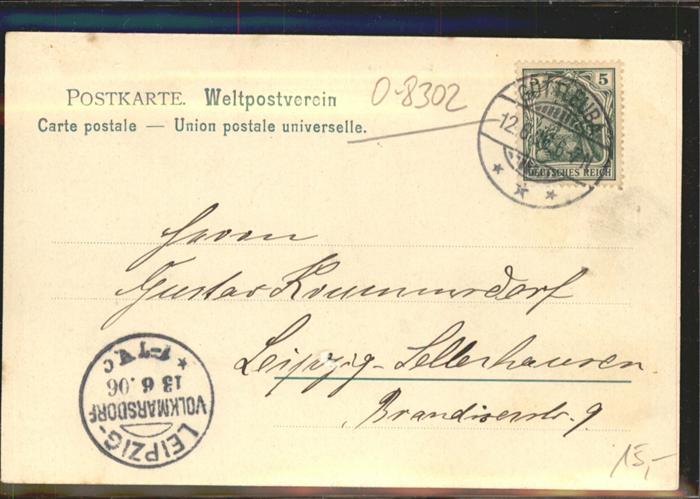 POSTKARTE. Weltpostverein
Carte postale — Union postale universelle.
0-8302
5 5
DEUTSCHES REICH
GOTTLEUBA
12.6.06.6-7N
Herrn
Gustav Krummersdorf
Leipzig-Sellerhausen
Brandiserstr. 9
LEIPZIG-
VOLKMARSDORF
13 6.06
* 1-7V. c
15,-